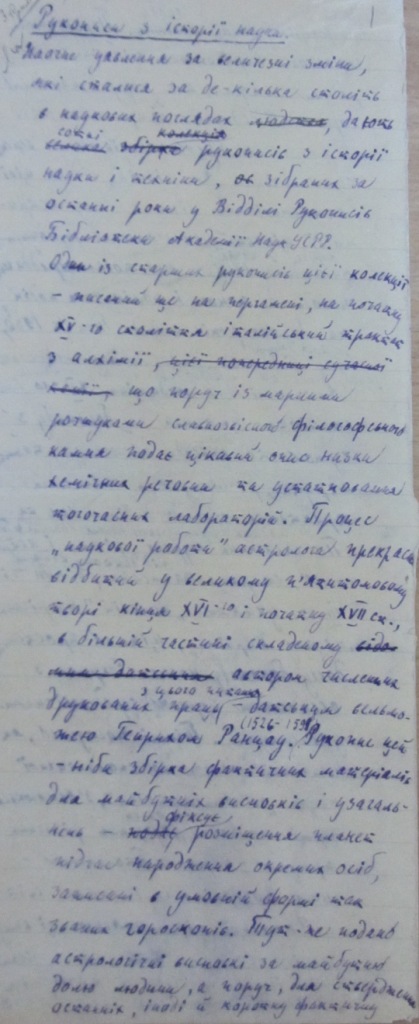 1
Рукописи з історії науки.
Наочне уявлення за величезні зміни,
які сталися за де-кілька століть
в наукових поглядах людства, дають
сотні колекція
великі збірка рукописів з історії
науки і техніки, зібраних за
останні роки у Відділі Рукописів
Бібліотеки Академії Наук УСРР.
Один із старших рукописів цієї колекції
– писаний ще на пергамені, на початку
XV-го століття італійський трактат
з алхімії, цієї попередниці сучасної
хемії, що поруч із марними
розшуками славнозвісного філософського
каменя подає цікавий опис низки
хемічних речовин та устатковання
тогочасних лабораторій. Процес
„наукової роботи" астролога прекрасно
відбитий у великому п'ятитомовому
творі кінця XVI-го і початку XVII ст.,
в більшій частині складеному відо-
мим датським автором численних
з цього
друкованих праць – датським вельмо-
(1526-1598)
жею Генрихом Ранцау. Рукопис цей
– ніби збірка фактичних матеріялів
для майбутніх висновків і узагаль-
фіксує
нень – подає розміщення планет
підчас народження окремих осіб,
записані в умовній формі так
званих гороскопів. Тут-же подано
астрологічні висновки за майбутню
долю людини, а поруч, для ствердження
останніх, іноді й коротку фактичну